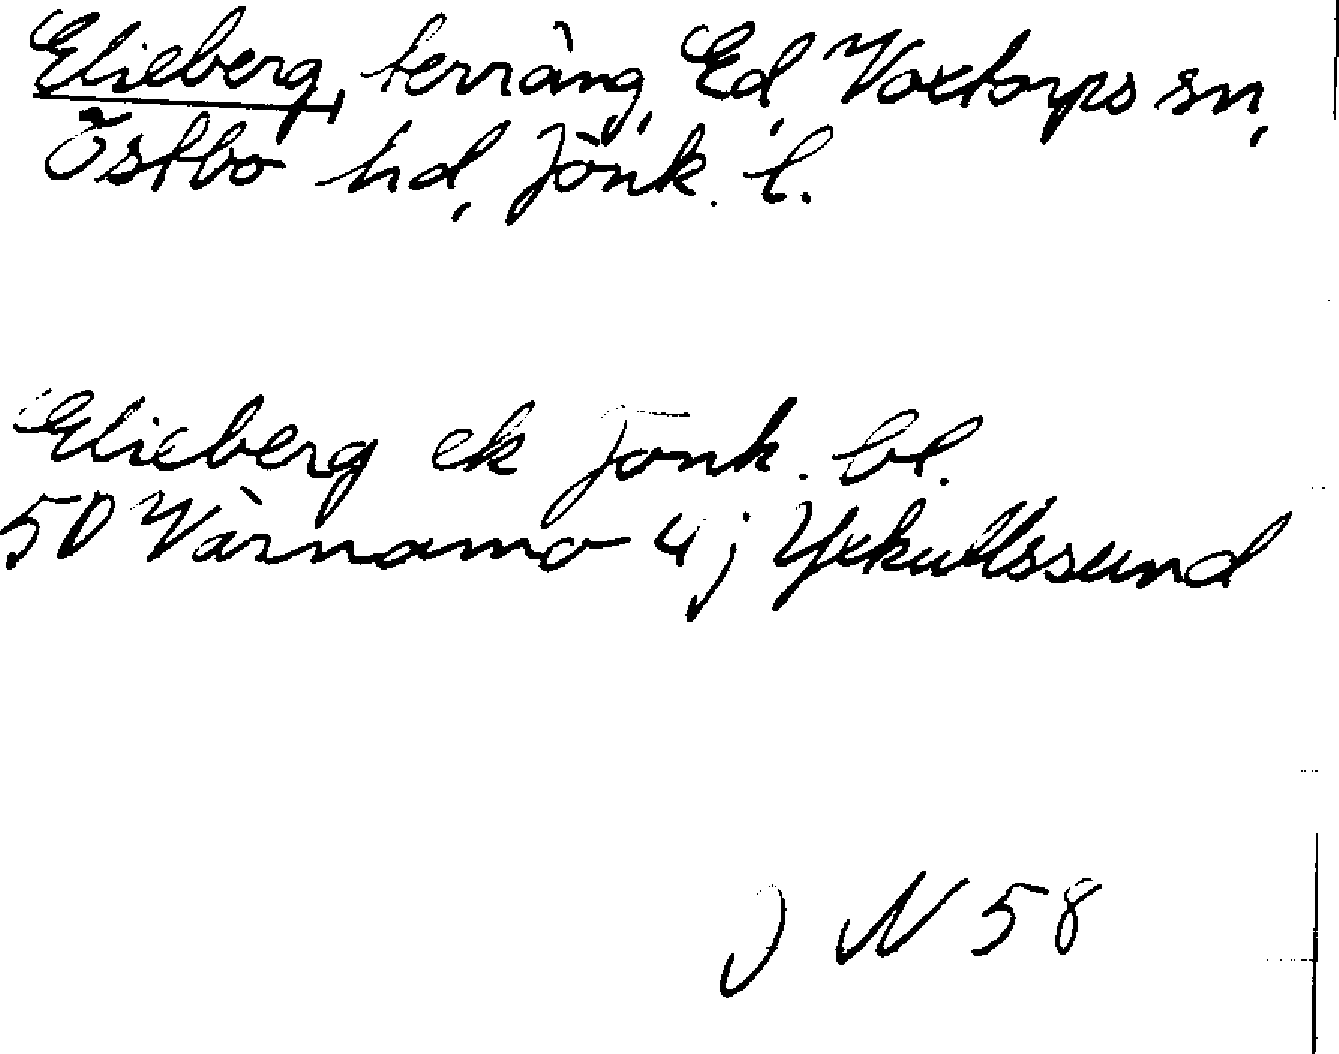 Elieberg, terräng, Ed, Voxtorps sn,
Östbo hd, Jönk. l.
Elieberg ek Jönk. bl.
50 Värnamo 4j Yxkullssund
J N 58